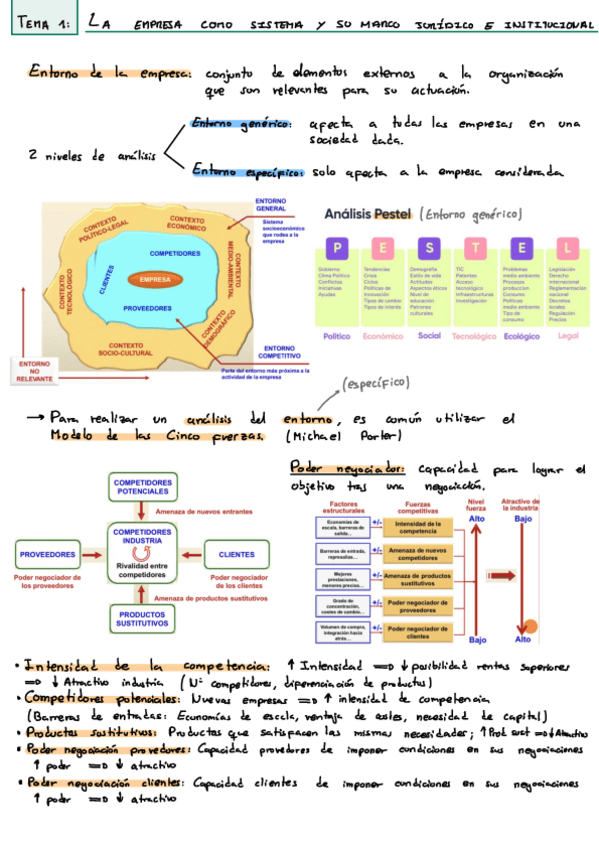 TEMA 1: LA EMPRESA COMO SISTEMA Y SU MARCO JURÍDICO E INSTITUCIONAL
Entorno de la empresa: conjunto de elementos externos a la organización
que son relevantes para su actuación.
2 niveles de análisis
Entorno genérico: afecta a todas las empresas en una
sociedad dada.
Entorno específico: solo afecta a la empresa considerada
ENTORNO
GENERAL
Sistema
socioeconómico
que rodea a la
empresa
CONTEXTO
POLÍTICO-LEGAL
CONTEXTO
ECONÓMICO
CONTEXTO
MEDIO-AMBIENTAL
CONTEXTO
TECNOLÓGICO
CONTEXTO
DEMOGRÁFICO
CONTEXTO
SOCIO-CULTURAL
COMPETIDORES
CLIENTES
EMPRESA
PROVEEDORES
ENTORNO
COMPETITIVO
Parte del entorno más próxima a la
actividad de la empresa
ENTORNO
NO
RELEVANTE
Análisis Pestel (Entorno genérico)
P E S T E L
Gobierno
Clima Político
Conflictos
Iniciativas
Ayudas
Tendencias
Crisis
Ciclos
Políticas de
innovación
Tipos de cambio
Tipos de interés
Demografía
Estilo de vida
Actitudes
Aspectos éticos
Nivel de
educación
Patrones
culturales
TIC
Patentes
Acceso
tecnológico
Infraestructuras
Investigación
Problemas
medio ambiente
Procesos
produccion
Consumo
Políticas
medio ambiente
Tipo de
consumo
Legislación
Derecho
internacional
Reglamentación
nacional
Decretos
locales
Regulación
Precios
Político Económico Social Tecnológico Ecológico Legal
(específico)
→ Para realizar un análisis del entorno, es común utilizar el
Modelo de las Cinco fuerzas. (Michael Porter)
Poder negociador: capacidad para lograr el
objetivo tras una negociación.
COMPETIDORES
POTENCIALES
Amenaza de nuevos entrantes
COMPETIDORES
INDUSTRIA
Rivalidad entre
competidores
PROVEEDORES
Poder negociador de
los proveedores
CLIENTES
Poder negociador
de los clientes
Amenaza de productos sustitutivos
PRODUCTOS
SUSTITUTIVOS
Factores
estructurales
Fuerzas
competitivas
Nivel
fuerza
Atractivo de
la industria
Alto
Bajo
Economías de
escala, barreras de
salida...
+/-
Intensidad de la
competencia
Barreras de entrada,
represalias...
+/-
Amenaza de nuevos
competidores
Mejores
prestaciones,
menores precios...
+/-
Amenaza de productos
sustitutivos
Grado de
concentración,
costes de cambio...
+/-
Poder negociador de
proveedores
Volumen de compra,
integración hacia
atrás...
+/-
Poder negociador de
clientes
Bajo
Alto
• Intensidad de la competencia: ↑ Intensidad => ↓ posibilidad rentas superiores
=> ↓ Atractivo industria (Nº competidores, diferenciación de productos)
• Competidores potenciales: Nuevas empresas => ↑ intensidad de competencia
(Barreras de entradas: Economías de escala, ventaja de costes, necesidad de capital)
• Productos sustitutivos: Productos que satisfacen las mismas necesidades; ↑ Prod. sust => ↓ Atractivo
• Poder negociación provedores: Capacidad provedores de imponer condiciones en sus negociaciones
↑ poder => ↓ atractivo
• Poder negociación clientes: Capacidad clientes de imponer condiciones en sus negociaciones
↑ poder => ↓ atractivo